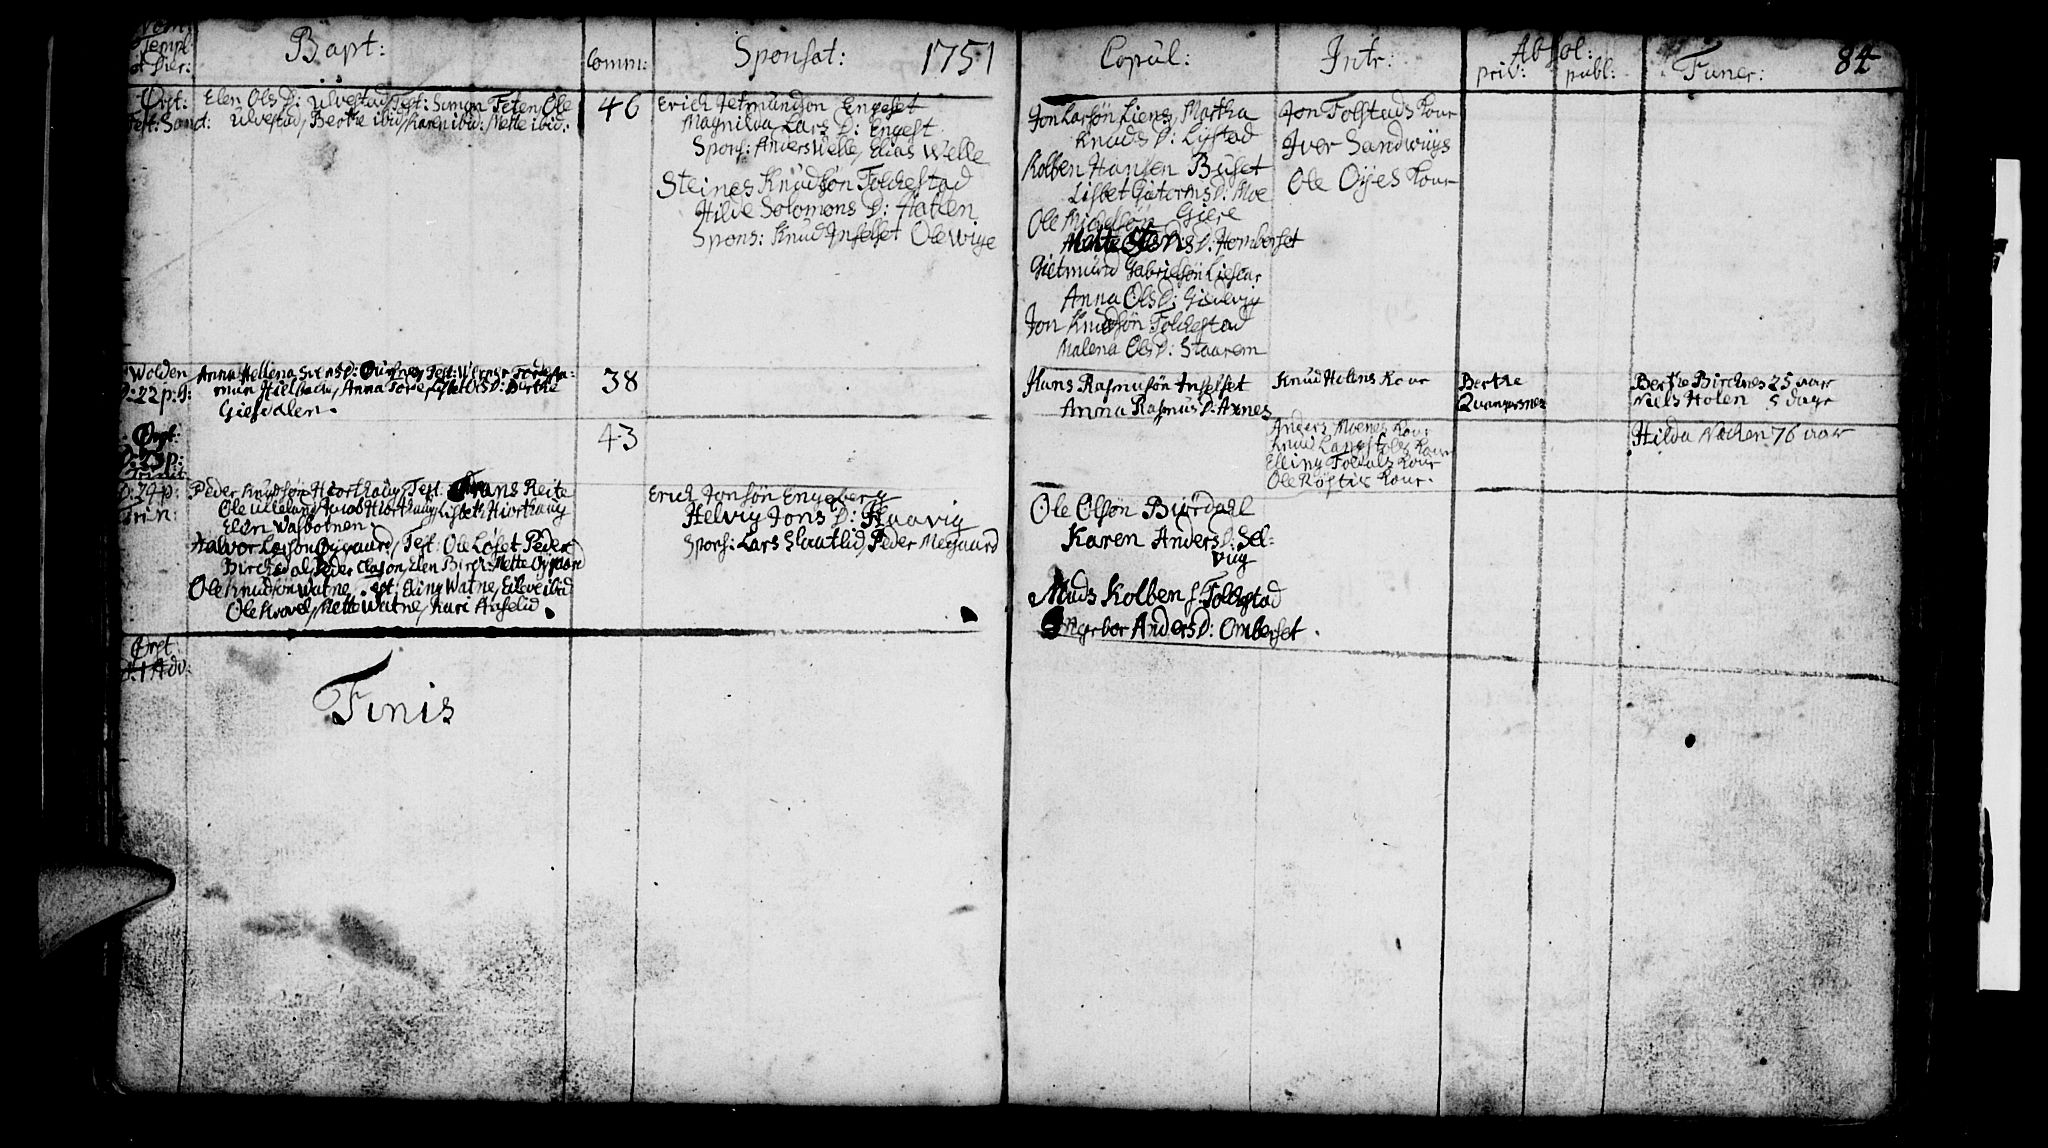 Nom:
Templ:
et Dier:
Bapt:
Comm:
Sponsat:
1751
Copul:
Intr:
Absol:
priv:
publ:
Funer:
84
Ørst:
Fest: Sanct:
Elen Ols D: Ulvestad Test: Simon Feten, Ole
Ulvestad, Berthe ibid, Karen ibid: Mette ibid:
46
Erich Jetmundson Engeset
Magnilda Lars D: Engeset
Spons: Anders Welle, Elias Welle
Steines Knudsøn Folchestad
Hilde Solomons D: Hatlen
Spons: Knud Inselset Ole Wige
Jon Larsøn Lienes, Martha
Knuds D: Lystad
Kolben Hansen Buset
Lisbet Guttorms D: Moe
Ole Giere
Mette D: Homberset
Gietmund Gabrielsøn
Anna Ols D:
Jon Knudsøn Folchestad
Malena Ols D: Staarem
Jon Folstads Kone
Iver Sandwiigs
Ole Øyes Kone
Wolden
D: 22 p: 9:
Anna Hellena Svens D: Test:
mun Anna Lisbet Ols D: Birthe
Gierdalen.
38
Hans Rasmusøn Inselset
Anna Rasmus D: Axnes
Knud Holens Kone
Berthe
Berthe Birchnes 25 aar
Niels Holen 5 dage
Ørst:
D: 23 p:
Trinit
43
Anders Moenes Kone
Knud Kone
Elling Kone
Ole Kone.
Hilda Nachen 76 aar
D: 24 p:
Trin:
Peder Knudsøn Hiorthaug Test: Frans Reite
Ole Ulleland, Jacob Hiorthaug, Lisbeth Hiorthaug
Elen Wasbotnen.
Halvor Larsøn Øygaard, Test: Ole Løset Peder
Birchedal, Peder Elen Birch: Mette Øygaard
Ole Knudsøn Watne, Test: Elling Watne, Eileve ibid
Ole Mette Watne, Kari
Erich Jonsøn Engeberg
Helvig Jons D: Haavig
Spons: Lars Slautlid, Peder Megaard
Ole Olsøn Biørdahl
Karen Anders D: Sel-
vug
Mads Kolben s: Folchestad
Ingebor Anders D: Omberset.
Ørst
D: 1 Adv:
Finis